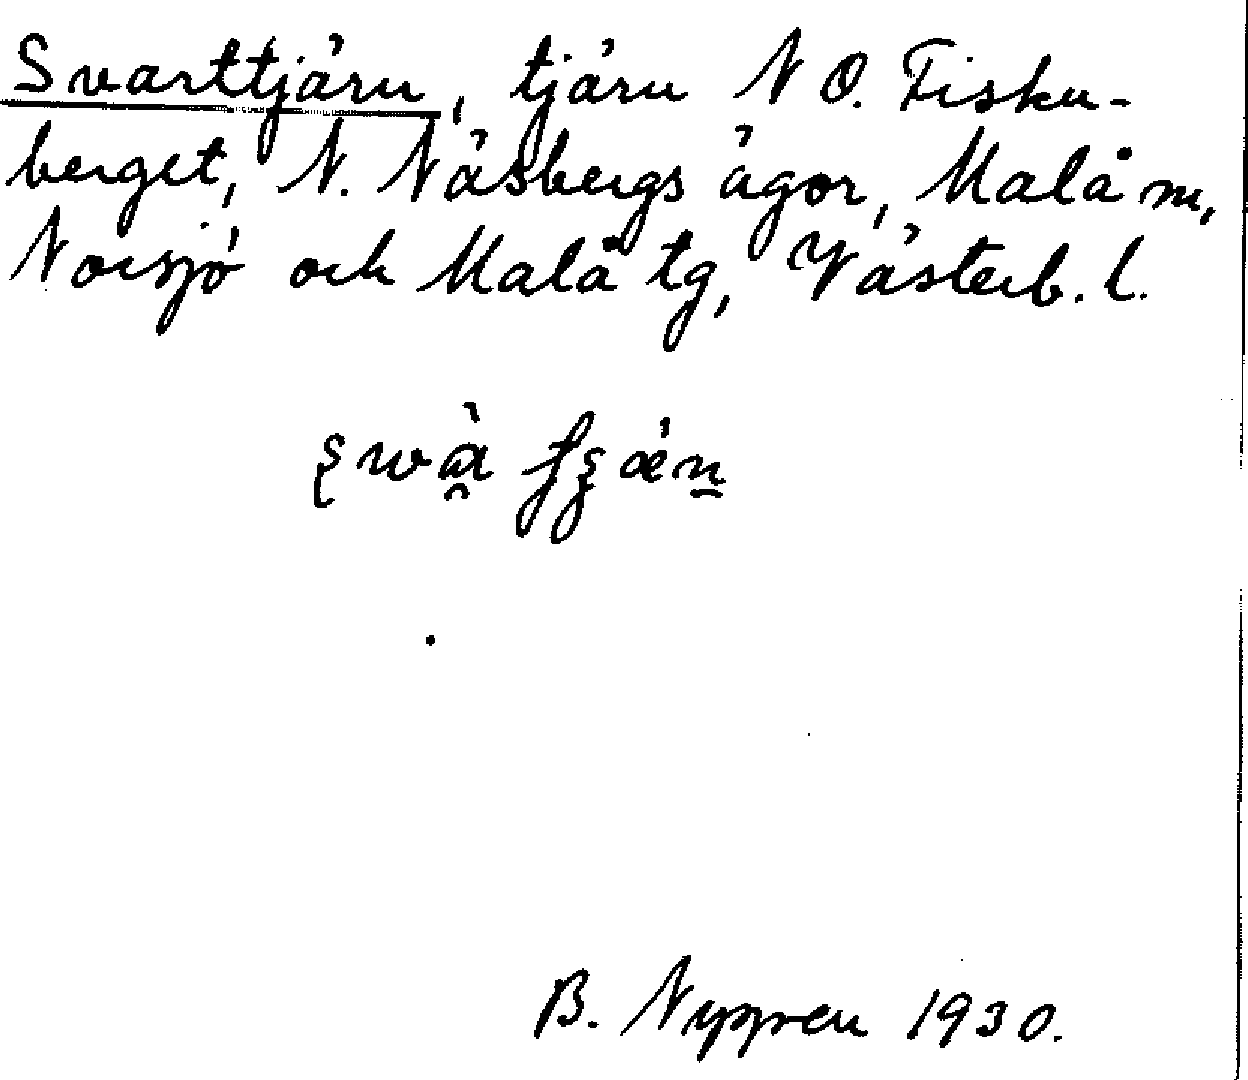 Svarttjärn, tjärn N O. Fisku-
berget, N. Näsbergs ägor, Malå sn,
Norsjö och Malå tg, Västerb. l.
B. Nygren 1930.